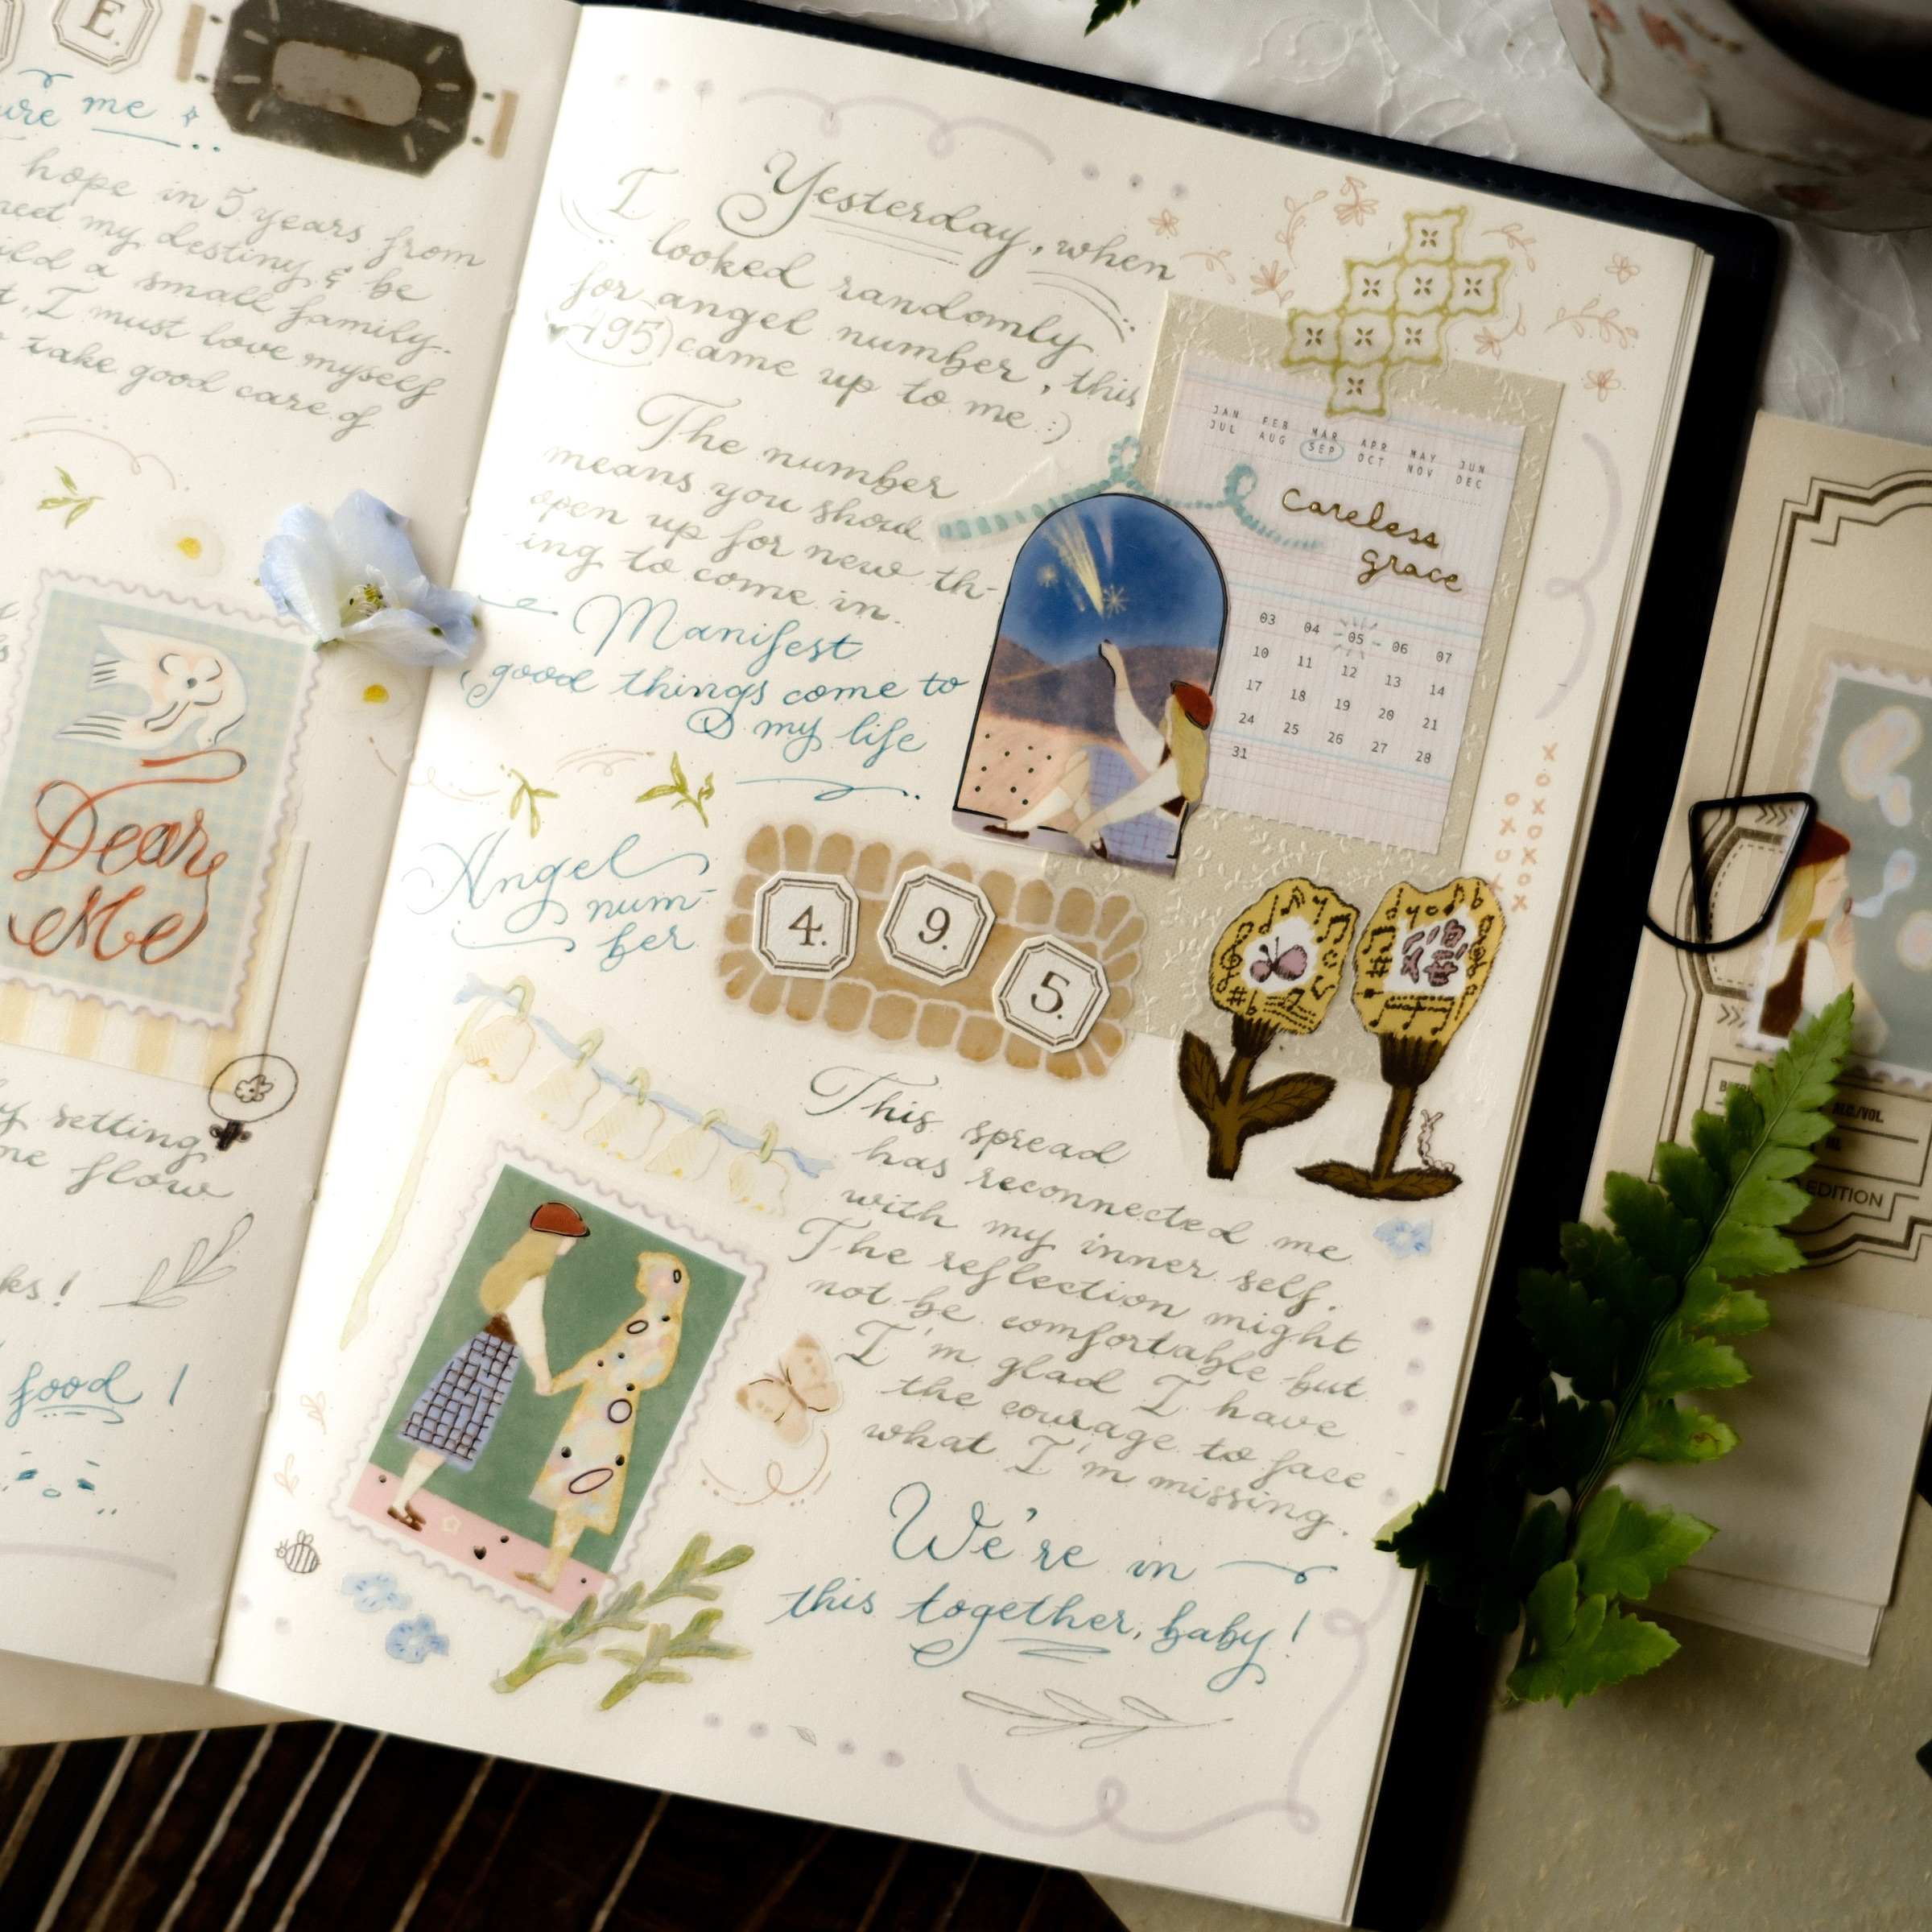 E.
me
hope in 5 years from
meet my destiny & be
a small family.
I must love myself
take good care of
Dear
Me
setting
flow
food !
Yesterday, when
I looked randomly
for angel number, this
495 came up to me :)
The number
means you should
open up for new th-
ing to come in.
Manifest
good things come to
my life
Angel
num-
ber
4. 9. 5.
JAN FEB MAR APR MAY JUN
JUL AUG SEP OCT NOV DEC
careless
grace
03 04 05 06 07
10 11 12 13 14
17 18 19 20 21
24 25 26 27 28
31
xoxoxox
oxox
This spread
has reconnected me
with my inner self.
The reflection might
not be comfortable but
I'm glad I have
the courage to face
what I'm missing.
We're in
this together, baby!
ALC./VOL.
EDITION